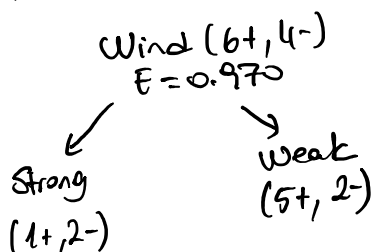 Wind (6+, 4-)
E = 0.970
Strong
(1+, 2-)
Weak
(5+, 2-)